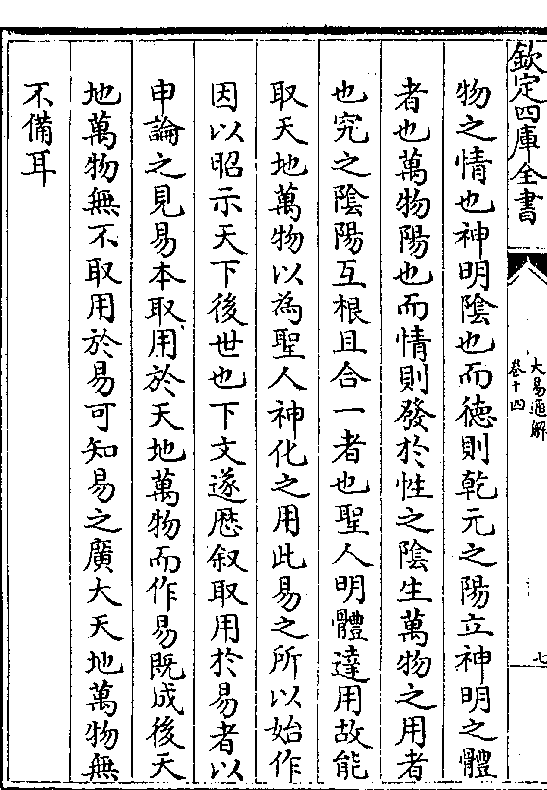 欽定四庫全書
大易通解
卷十四
七
物之情也神明陰也而德則乾元之陽立神明之體
者也萬物陽也而情則發於性之陰生萬物之用者
也究之陰陽互根且合一者也聖人明體達用故能
取天地萬物以為聖人神化之用此易之所以始作
因以昭示天下後世也下文遂歷叙取用於易者以
申論之見易本取用於天地萬物而作易既成後天
地萬物無不取用於易可知易之廣大天地萬物無
不備耳